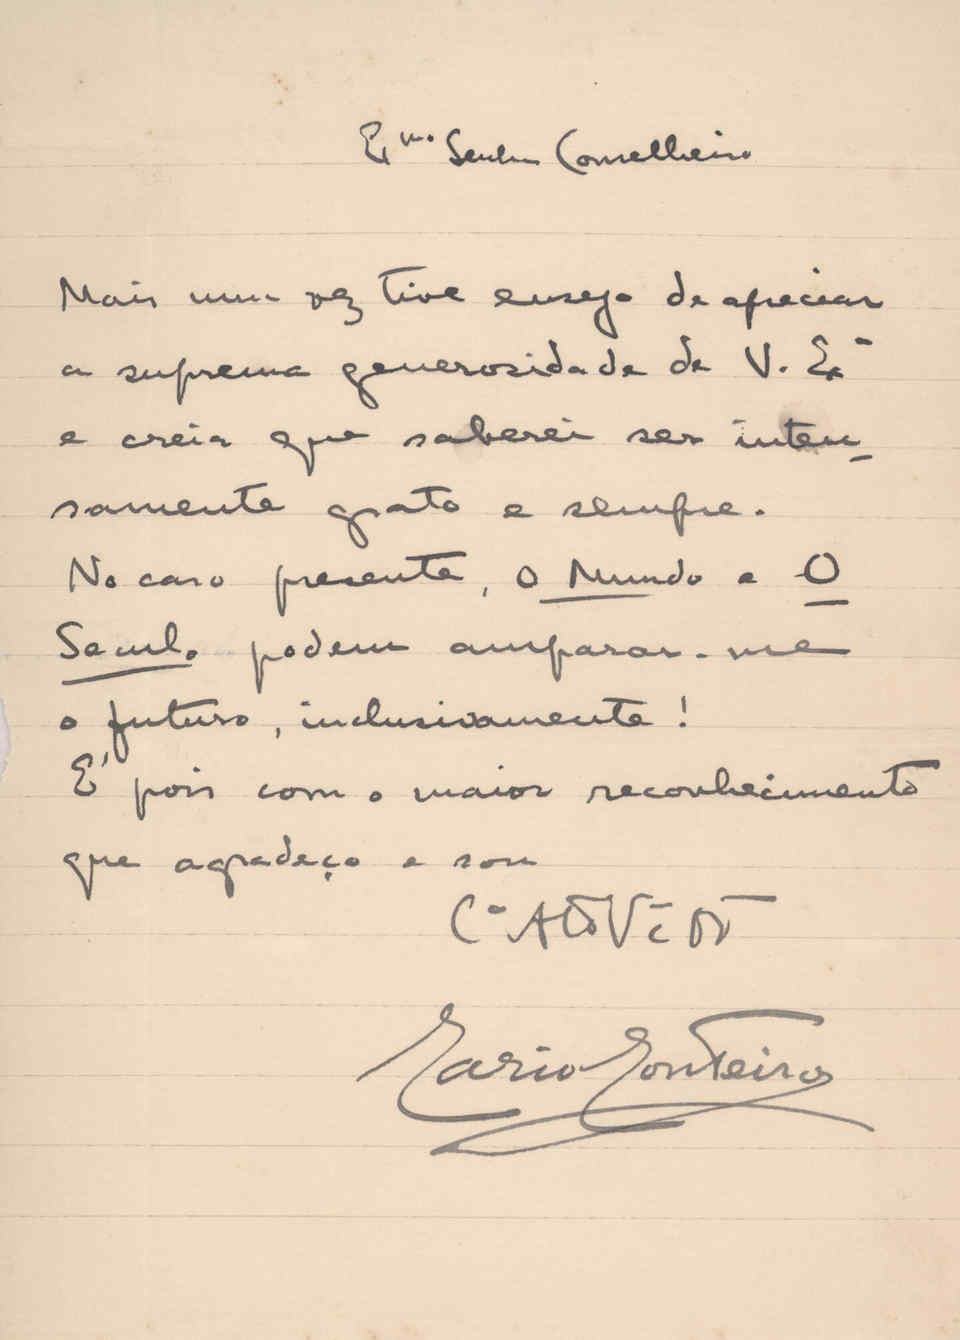 Exmo Senhor Conselheiro
Mais uma vez tive ensejo de apreciar
a suprema generosidade de V. Exª
e creia que saberei ser inten-
samente grato e sempre.
No caso presente, O Mundo e O
Seculo podem amparar-me
o futuro, inclusivamente!
E' pois com o maior reconhecimento
que agradeço e sou
Cº Atº Vº
Mario Monteiro